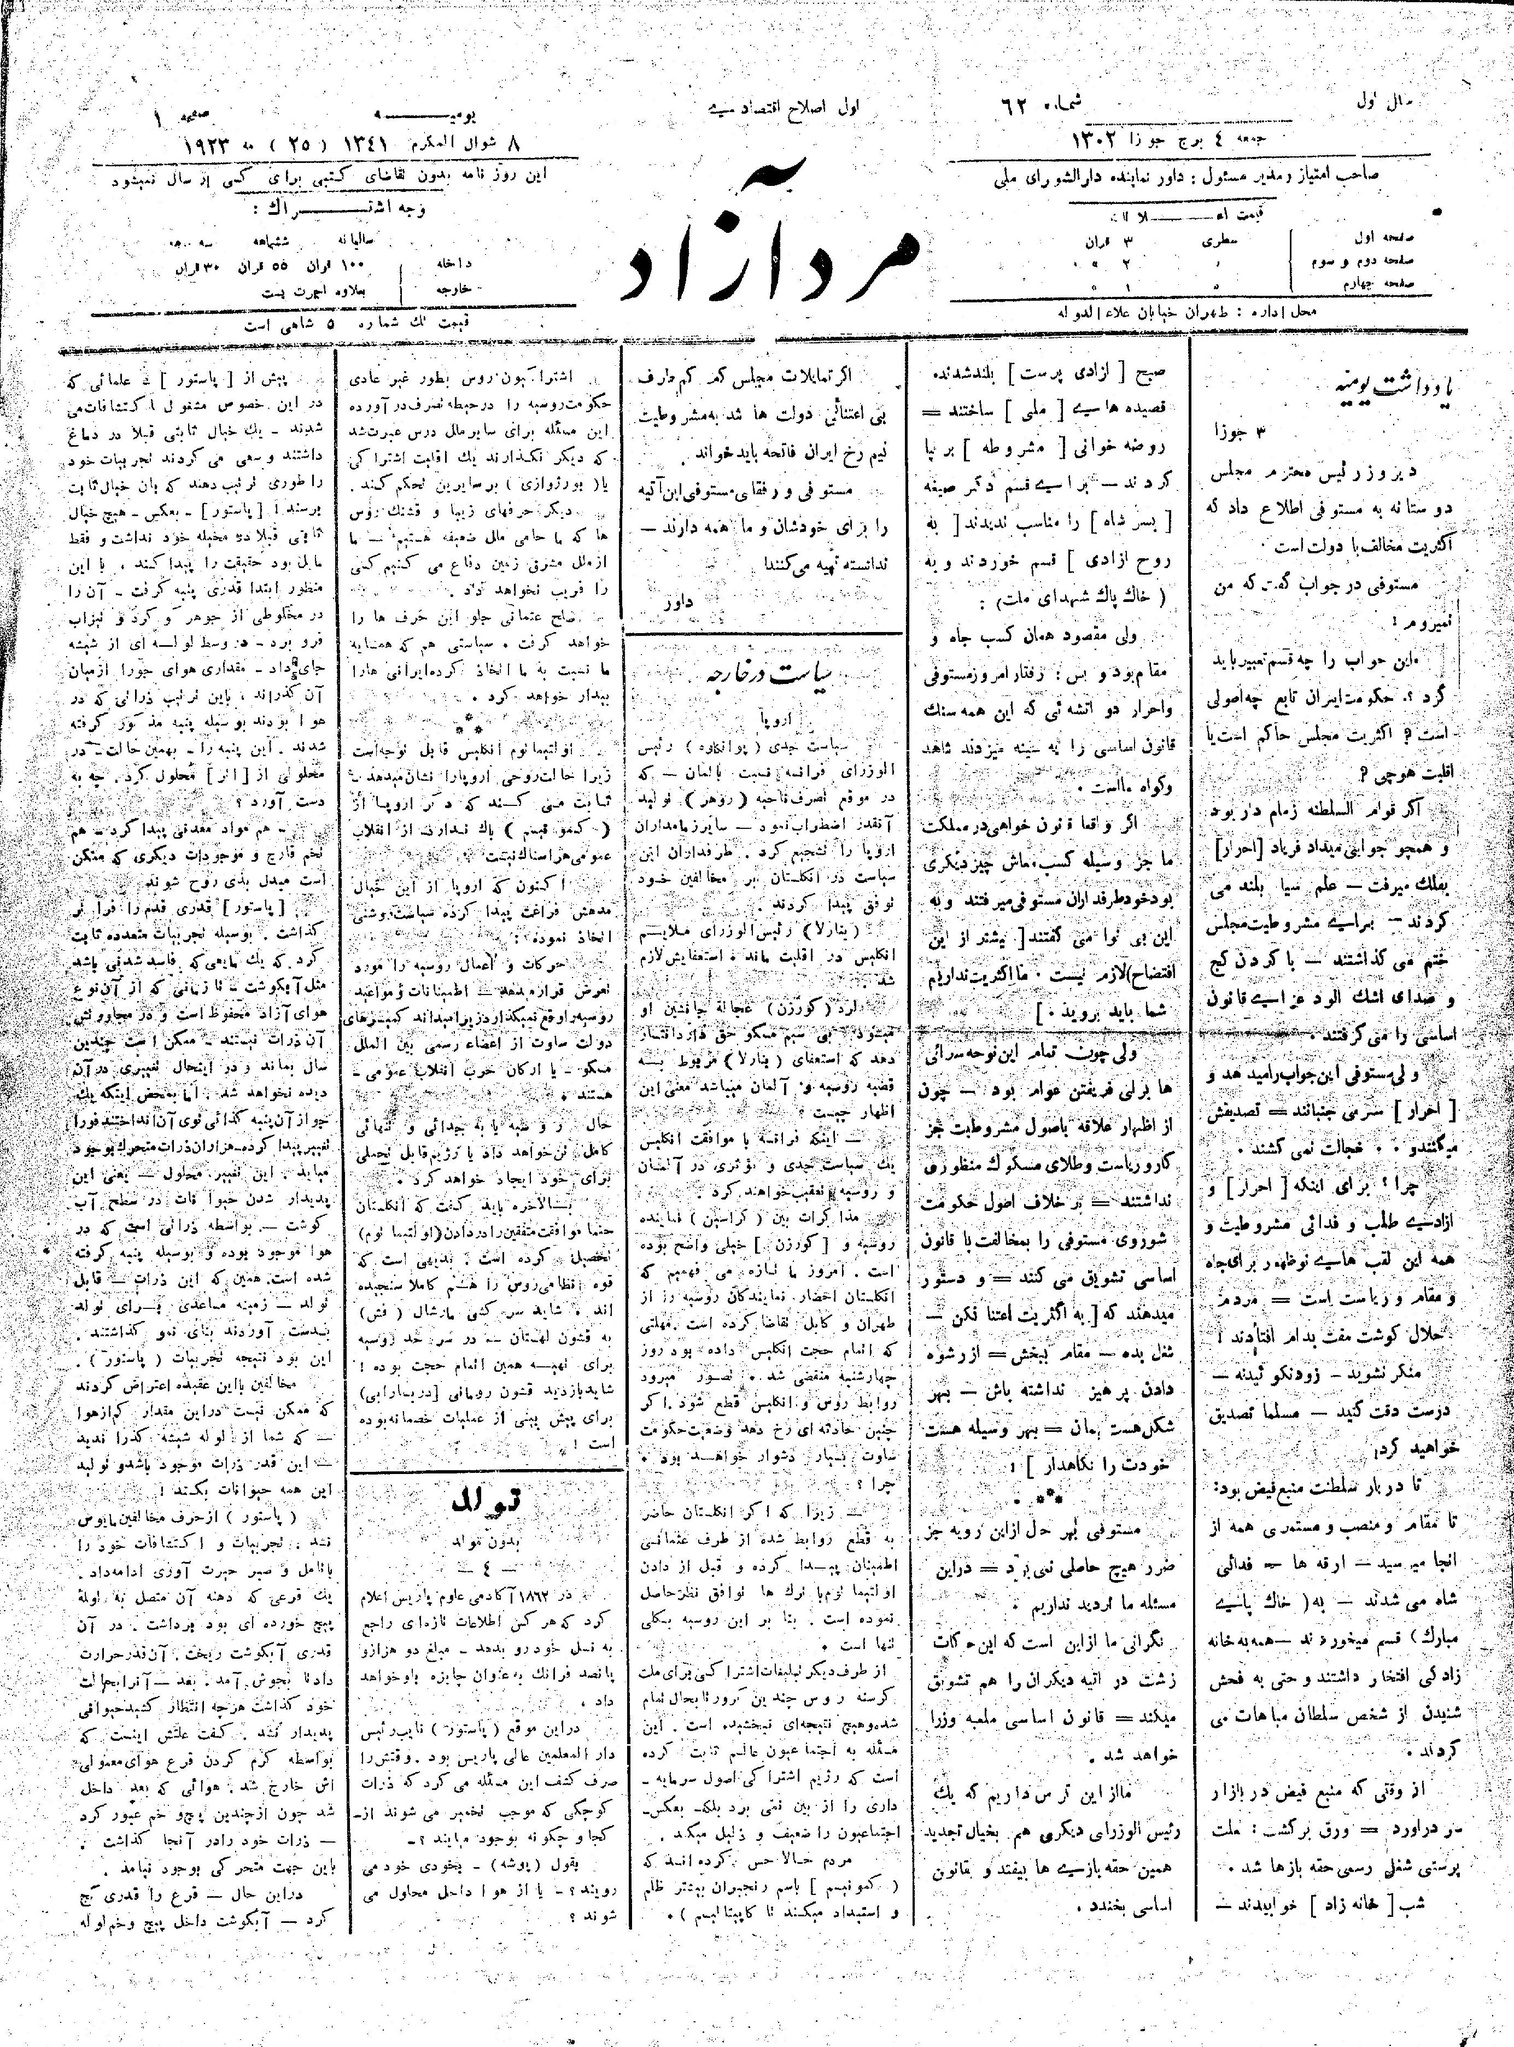 سال اول
شماره ٦٢
جمعه ٤ برج جوزا ١٣٠٢
صاحب امتیاز و مدیر مسئول : داور نماینده دارالشورای ملی
قیمت اعلانات
صفحه اول سطری ٣ قران
صفحه دوم و سوم » ٢ »
صفحه چهارم » ١ »
محل اداره : طهران خیابان علاء الدوله
اول اصلاح اقتصادی
مرد آزاد
یومیه
صفحه ١
٨ شوال المکرم ١٣٤١ ( ٢٥ ) مه ١٩٢٣
این روز نامه بدون تقاضای کتبی برای کسی ارسال نمیشود
وجه اشتراک :
سالیانه ششماهه سه ماهه
داخله ١٠٠ قران ٥٥ قران ٣٠ قران
خارجه بعلاوه اجرت پست
قیمت تك شماره ٥ شاهی است
یادداشت یومیه
٣ جوزا
دیروز رئیس محترم مجلس
دوستانه به مستوفی اطلاع داد که
اکثریت مخالف با دولت است .
مستوفی در جواب گفت که من
نمیروم !
این جواب را چه قسم تعبیر باید
کرد ؟ حکومت ایران تابع چه اصولی
است ؟ اکثریت مجلس حاکم است یا
اقلیت هوچی ؟
اگر قوام السلطنه زمام دار بود
و همچو جوابی میداد فریاد [احرار]
بفلك میرفت — علم سیا بلند می
کردند — برای مشروطیت مجلس
ختم می گذاشتند — با گردن کج
و صدای اشك الود عزای قانون
اساسی را می گرفتند .
ولی مستوفی این جواب را میدهد و
[ احرار ] سری جنبانند = تصدیقش
میکنند و . . خجالت نمی کشند .
چرا ؟ برای اینکه [ احرار ] و
ازادی طلب و فدائی مشروطیت و
همه این لقب های نوظهور برای جاه
و مقام و ریاست است = مردم
حلال گوشت مفت بدام افتادند !
منکر نشوید — زود نگوئید نه —
درست دقت کنید — مسلما تصدیق
خواهید کرد!
تا دربار سلطنت منبع فیض بود:
تا مقام و منصب و مستمری همه از
انجا میرسید = ارقه ها = فدائی
شاه می شدند — به ( خاك پای
مبارك ) قسم میخوردند — همه به خانه
زادگی افتخار داشتند و حتی به فحش
شنیدن از شخص سلطان مباهات می
کردند .
از وقتی که منبع فیض در بازار
سر دراورد = ورق برگشت : ملت
پرستی شغل رسمی حقه بازها شد .
شب [ خانه زاد ] خوابیدند —
صبح [ ازادی پرست ] بلند شدند
قصیده های [ ملی ] ساختند =
روضه خوانی [ مشروطه ] برپا
کردند — برای قسم دگر صیغه
[ بسر شاه ] را مناسب ندیدند [ به
روح ازادی ] قسم خوردند و به
( خاك پاك شهدای ملت ) :
ولی مقصود همان کسب جاه و
مقام بود و بس : رفتار امروز مستوفی
واحرار دو اتشه ئی که این همه سنك
قانون اساسی را به سینه میزدند شاهد
وگواه ماست .
اگر واقعا قانون خواهی در مملکت
ما جز وسیله کسب معاش چیز دیگری
بود خود طرفداران مستوفی میرفتند و به
این بی نوا می گفتند [ بیشتر از این
افتضاح لازم نیست . ما اکثریت نداریم
شما باید بروید . ]
ولی چون تمام این نوحه سرائی
ها برای فریفتن عوام بود — چون
از اظهار علاقه باصول مشروطیت جز
کار و ریاست و طلای مسکوك منظوری
نداشتند = بر خلاف اصول حکومت
شوروی مستوفی را بمخالفت با قانون
اساسی تشویق می کنند = و دستور
میدهند که [ به اکثریت اعتنا نکن —
شغل بده — مقام ببخش = از رشوه
دادن پرهیز نداشته باش — بهر
شکل هست بمان = بهر وسیله هست
خودت را نگاهدار ] !
***
مستوفی بهر حال از این رویه جز
ضرر هیچ حاصلی نمی برد = در این
مسئله ما تردید نداریم .
نگرانی ما از این است که این حرکات
زشت در اتیه دیگران را هم تشویق
میکند = قانون اساسی ملعبه وزرا
خواهد شد .
ما از این ترس داریم که یك
رئیس الوزرای دیگری هم بخیال تجدید
همین حقه بازی ها بیفتد و بقانون
اساسی بخندد .
اگر تمایلات مجلس کم کم طرف
بی اعتنائی دولت ها شد به مشروطیت
نیم رخ ایران فاتحه باید خواند .
مستوفی و رفقای مستوفی این آتیه
را برای خودشان و ما همه دارند —
ندانسته تهیه می کنند!
داور
سیاست در خارجه
اروپا
سیاست جدی ( پوانکاره ) رئیس
الوزرای فرانسه نسبت بالمان — که
در موقع تصرف ناحیه ( روهر ) تولید
آنقدر اضطراب نمود — سایر زمامداران
اروپا را تشجیع کرد . طرفداران این
سیاست در انگلستان بر مخالفین خود
توفق پیدا کردند .
( بنارلا ) رئیس الوزرای ملایم
انگلیس در اقلیت ماند . استعفایش لازم
شد .
لرد ( کورزن ) عجالة جانشین او
میشود . بی سیم مسکو حق دارد انتشار
دهد که استعفای ( بنارلا ) مربوط بسه
قضیه روسیه و آلمان میباشد معنی این
اظهار چیست ؟
— اینکه فرانسه با موافقت انگلیس
یك سیاست جدی و مؤثری در آلمان
و روسیه تعقیب خواهند کرد .
مذاکرات بین ( کراسین ) نماینده
روسیه و [ کورزن ] خیلی واضح بوده
است . امروز ما تازه می فهمیم که
انگلستان احضار نمایندگان روسیه را از
طهران و کابل تقاضا کرده است . مهلتی
که اتمام حجت انگلیس داده بود روز
چهارشنبه منقضی شد . تصور میرود
روابط روس و انگلیس قطع شود . اگر
چنین حادثه ای رخ دهد وضعیت حکومت
ساوت بسیار دشوار خواهد بود .
چرا ؟
— زیرا که اگر انگلستان حاضر
به قطع روابط شده از طرف عثمانی
اطمینان پیدا کرده و قبل از دادن
اولتیماتوم با ترك ها توافق نظر حاصل
نموده است . بنا بر این روسیه بکلی
تنها است .
از طرف دیگر تبلیغات اشتراکی برای ملت
گرسنه روس چندین کرور تا بحال تمام
شده و هیچ نتیجه ای نبخشیده است . این
مسئله به اجتماعیون عالم ثابت کرده
است که رژیم اشتراکی اصول سرمایه —
داری را از بین نمی برد بلکه بعکس —
اجتماعیون را ضعیف و ذلیل میکند .
مردم حالا حس کرده اند که
( کمونیسم ] باسم رنجبران بیشتر ظلم
و استبداد میکند تا کاپیتالیسم ) .
اشتراکیون روس بطور غیر عادی
حکومت روسیه را در حیطه تصرف در آورده
این مسئله برای سایر ملل درس عبرت شد
که دیگر نگذارند یك اقلیت اشتراکی
یا ( بورژوازی ) بر سایرین تحکم کند .
دیگر حرفهای زیبا و قشنك روس
ها که ما حامی ملل ضعیفه هستیم — ما
از ملل مشرق زمین دفاع می کنیم کسی
را فریب نخواهد داد .
صلح عثمانی جلو این حرف ها را
خواهد گرفت . سیاستی هم که همسایه
ما نسبت به ما اتخاذ کرده ایرانی ها را
بیدار خواهد کرد .
***
اولتیماتوم انگلیس قابل توجه است
زیرا حالت روحی اروپا را نشان میدهد —
ثابت می کند که دگر اروپا از
( کمونیسم ) باك ندارد . از انقلاب
عمومی هراسناك نیست ؟
اکنون که اروپا از این خیال
مدهش فراغت پیدا کرده سیاست روشنی
اتخاذ نموده :
حرکات و اعمال روسیه را مورد
تعرض قرار میدهد — اطمینانات و مواعید
روسیه را وقع نمیگذارد زیرا میداند کمیسرهای
دولت ساوت از اعضاء رسمی بین الملل
مسکو — یا ارکان حزب انقلاب عمومی —
هستند .
حال روسیه یا به جدائی و تنهائی
کامل تن خواهد داد یا رژیم قابل تحملی
برای خود ایجاد خواهد کرد .
بالاخره باید گفت که انگلستان
حتما موافقت متفقین را در دادن (اولتیماتوم)
تحصیل کرده است . بدیهی است که
قوه نظامی روس را هم کاملا سنجیده
اند . شاید سرکشی مارشال ( فش )
به قشون لهستان — در سرحد روسیه
برای تهیه همین اتمام حجت بوده !
شاید بازدید قشون رومانی [ در بسارابی )
برای پیش بینی از عملیات خصمانه بوده
است !
تولد
بدون مولد
— ٤ —
در ١٨٦٢ آکادمی علوم پاریس اعلام
کرد که هر کس اطلاعات تازه ای راجع
به نسل خود رو بدهد — مبلغ دو هزار و
پانصد فرانك بعنوان جایزه باو خواهد
داد .
در این موقع ( پاستور ) نایب رئیس
دار المعلمین عالی پاریس بود . وقتش را
صرف کشف این مسئله می کرد که ذرات
کوچکی که موجب تخمیر می شوند از —
کجا و چگونه بوجود میایند ؟ —
بقول (پوشه) — بخودی خود می
رویند ؟ — یا از هوا داخل محلول می
شوند ؟
پیش از [ پاستور ] علمائی که
در این خصوص مشغول اکتشافات می
شدند — یك خیال ثابتی قبلا در دماغ
داشتند و سعی می کردند تجربیات خود
را طوری ترتیب دهند که بان خیال ثابت
برسند ! [پاستور] — بعکس — هیچ خیال
ثابتی قبلا در مخیله خود نداشت و فقط
مایل بود حقیقت را پیدا کند . با این
منظور ابتدا قدری پنبه گرفت — آن را
در مخلوطی از جوهر گوگرد و تیزاب
فرو برد — در وسط لوله ای از شیشه
جای داد — مقداری هوای جو را از میان
آن گذراند ، باین ترتیب ذراتی که در
هوا بودند بوسیله پنبه مذکور گرفته
شدند . این پنبه را — بهمین حالت — در
محلولی از [ اتر ] محلول کرد . چه به
دست آورد ؟
— هم مواد معدنی پیدا کرد — هم
تخم قارچ و موجودات دیگری که ممکن
است مبدل بذی روح شوند
[پاستور] قدری قدم را فراتر
گذاشت . بوسیله تجربیات متعدده ثابت
کرد که یك مایعی که فاسد شدنی باشد
مثل آبگوشت — تا زمانی که از آن نوع
هوای آزاد محفوظ است و در مجاورتش
آن ذرات نیستند — ممکن است چندین
سال بماند و در اینحال تغییری در آن
دیده نخواهد شد . اما بمحض اینکه یك
جو از آن پنبه کذائی توی آن انداختند فورا
تغییر پیدا کرده — هزاران ذرات متحرك بوجود
میاید . این تغییر محلول — یعنی این
پدیدار شدن حیوانات در سطح آب
گوشت — بواسطه ذراتی است که در
هوا موجود بوده و بوسیله پنبه گرفته
شده است. همین که این ذرات — قابل
تولد — زمینه مساعدی برای تولد
بدست آوردند بنای نمو گذاشتند .
این بود نتیجه تجربیات ( پاستور ) .
مخالفین با این عقیده اعتراض کردند
که ممکن نیست در این مقدار کم از هوا
— که شما از لوله شیشه گذراندید
— این قدر ذرات موجود باشد و تولید
این همه حیوانات بکند !
( پاستور ) از حرف مخالفین مایوس
نشد . تجربیات و اکتشافات خود را
با تامل و صبر حیرت آوری ادامه داد .
یك قرعی که دهنه آن متصل به لوله
پیچ خورده ای بود برداشت . در آن
قدری آبگوشت ریخت . آن قدر حرارت
داد تا بجوش آمد . بعد — آنرا بحالت
خود گذاشت هر چه انتظار کشید حیوانی
پدیدار نشد . گفت علتش اینست که
بواسطه گرم کردن قرع هوای معمولی
اش خارج شد . هوائی که بعد داخل
شد چون از چندین پیچ و خم عبور کرد
— ذرات خود را در آنجا گذاشت .
باین جهت متحرکی بوجود نیامد .
در این حال — قرع را قدری کج
کرد — آبگوشت داخل پیچ و خم لوله